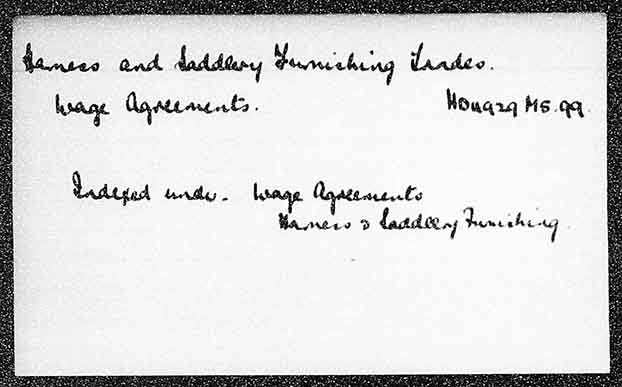 Harness and Saddlery Furnishing Trades.
Wage Agreements.
MS. 99.
Indexed under. Wage Agreements
Harness & Saddlery Furnishing.